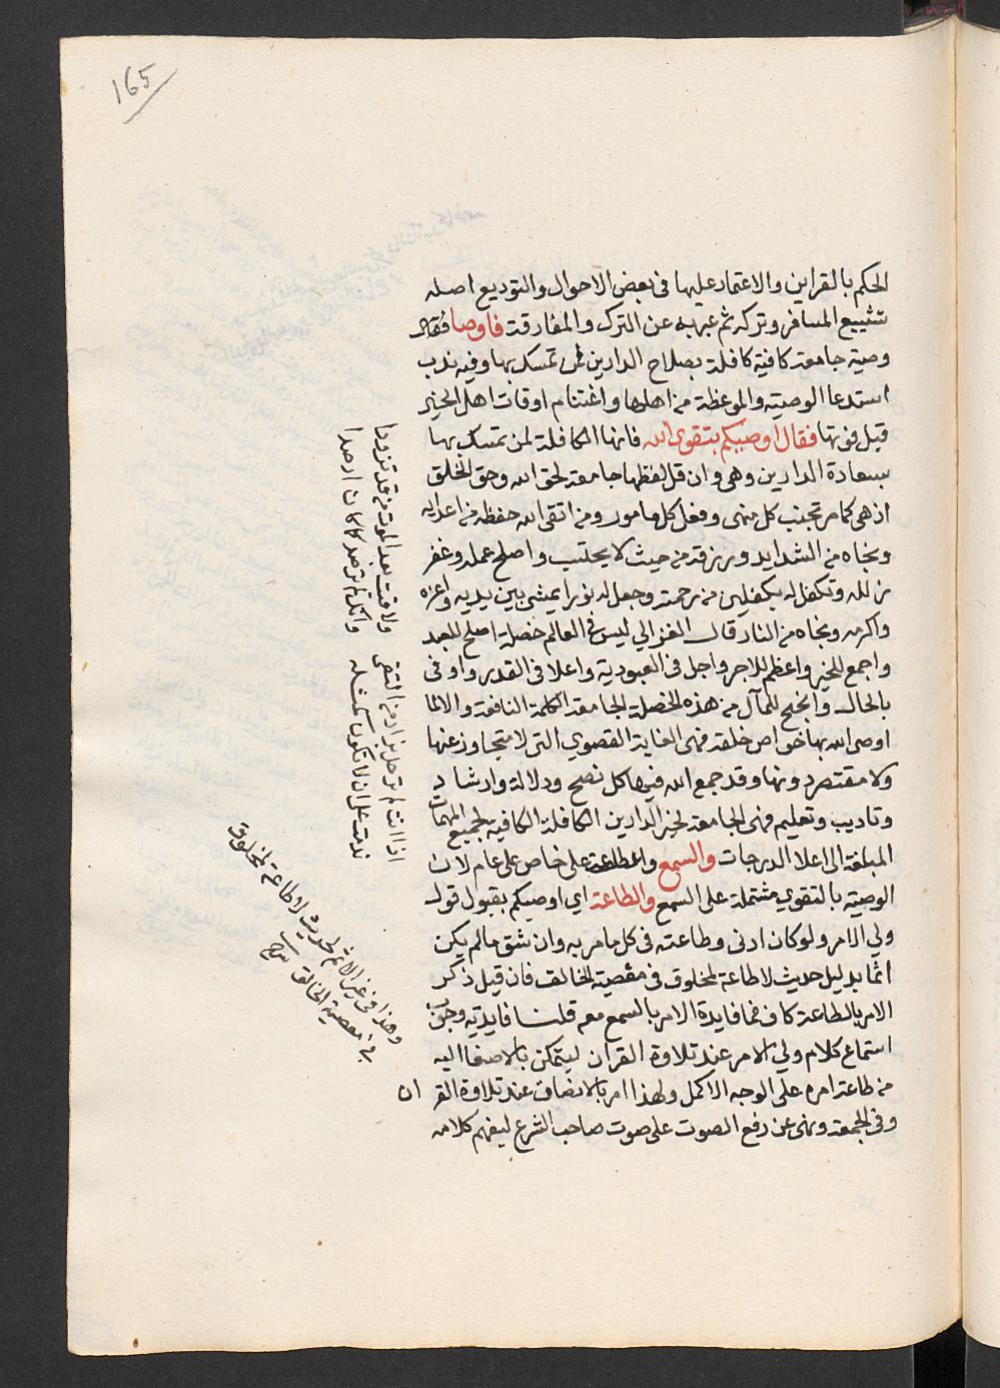 165
الحكم بالقراين والاعتماد عليها فى بعض الاحوال والتوديع اصله
تشييع المسافر وتركه ثم عبر به عن الترك والمفارقة فاوصنا فقال
وصية جامعة كافية كافلة بصلاح الدارين لمن تمسك بها وفيه ندب
استدعا الوصية والموعظة من اهلها واغتنام اوقات اهل الخير
قبل فوتها فقال اوصيكم بتقوى الله فانها الكافلة لمن تمسك بها
بسعادة الدارين وهى وان قل لفظها جامعة لحق الله وحق الخلق
اذ هى كما مر تجنب كل منهى وفعل كل مامور ومن اتقى الله حفظه من اعدايه
ونجاه من الشدايد ورزقه من حيث لا يحتسب واصلح عمله وغفر
زلله وتكفل له بكفلين من رحمته وجعل له نورا يمشى بين يديه واعزه
واكرمه ونجاه من النار قال الغزالي ليس فى العالم خصلة اصلح للعبد
واجمع للخير واعظم للاجر واجل فى العبودية واعلا فى القدر واوفى
بالحال وانجح للمآل من هذه الخصلة الجامعة الكلمة النافعة والالما
اوصى الله بها خواص خلقه فهى الغاية القصوى التى لا متجاوز عنها
ولا مقتصر دونها وقد جمع الله فيها كل نصح ودلالة وارشاد
وتاديب وتعليم فهى الجامعة لخير الدارين الكافلة الكافية لجميع المهمات
المبلغة الى اعلا الدرجات والسمع والطاعة على خاص على عام لان
الوصية بالتقوى مشتملة على السمع والطاعة اي اوصيكم بقبول قول
ولي الامر ولو كان ادنى وطاعته فى كل ما مر به وان شق ما لم يكن
اثما بدليل حديث لا طاعة لمخلوق فى معصية الخالق فان قيل ذكر
الامر بالطاعة كاف فما فايدة الامر بالسمع معه قلنا فايدته وجوب
استماع كلام ولي الامر عند تلاوة القران ليتمكن بالاصغا اليه
من طاعة امره على الوجه الاكمل ولهذا امر بالانصات عند تلاوة القران
وفى الجمعة ونهى عن رفع الصوت على صوت صاحب الشرع ليفهم كلامه
اذا انت لم ترحل بزاد من التقى ولاقيت بعد الموت من قد تزودا
ندمت على ان لا تكون كمثله وانك لم ترصد كما كان ارصدا
وهذا فى غير الاثم لحديث لا طاعة لمخلوق
فى معصية الخالق